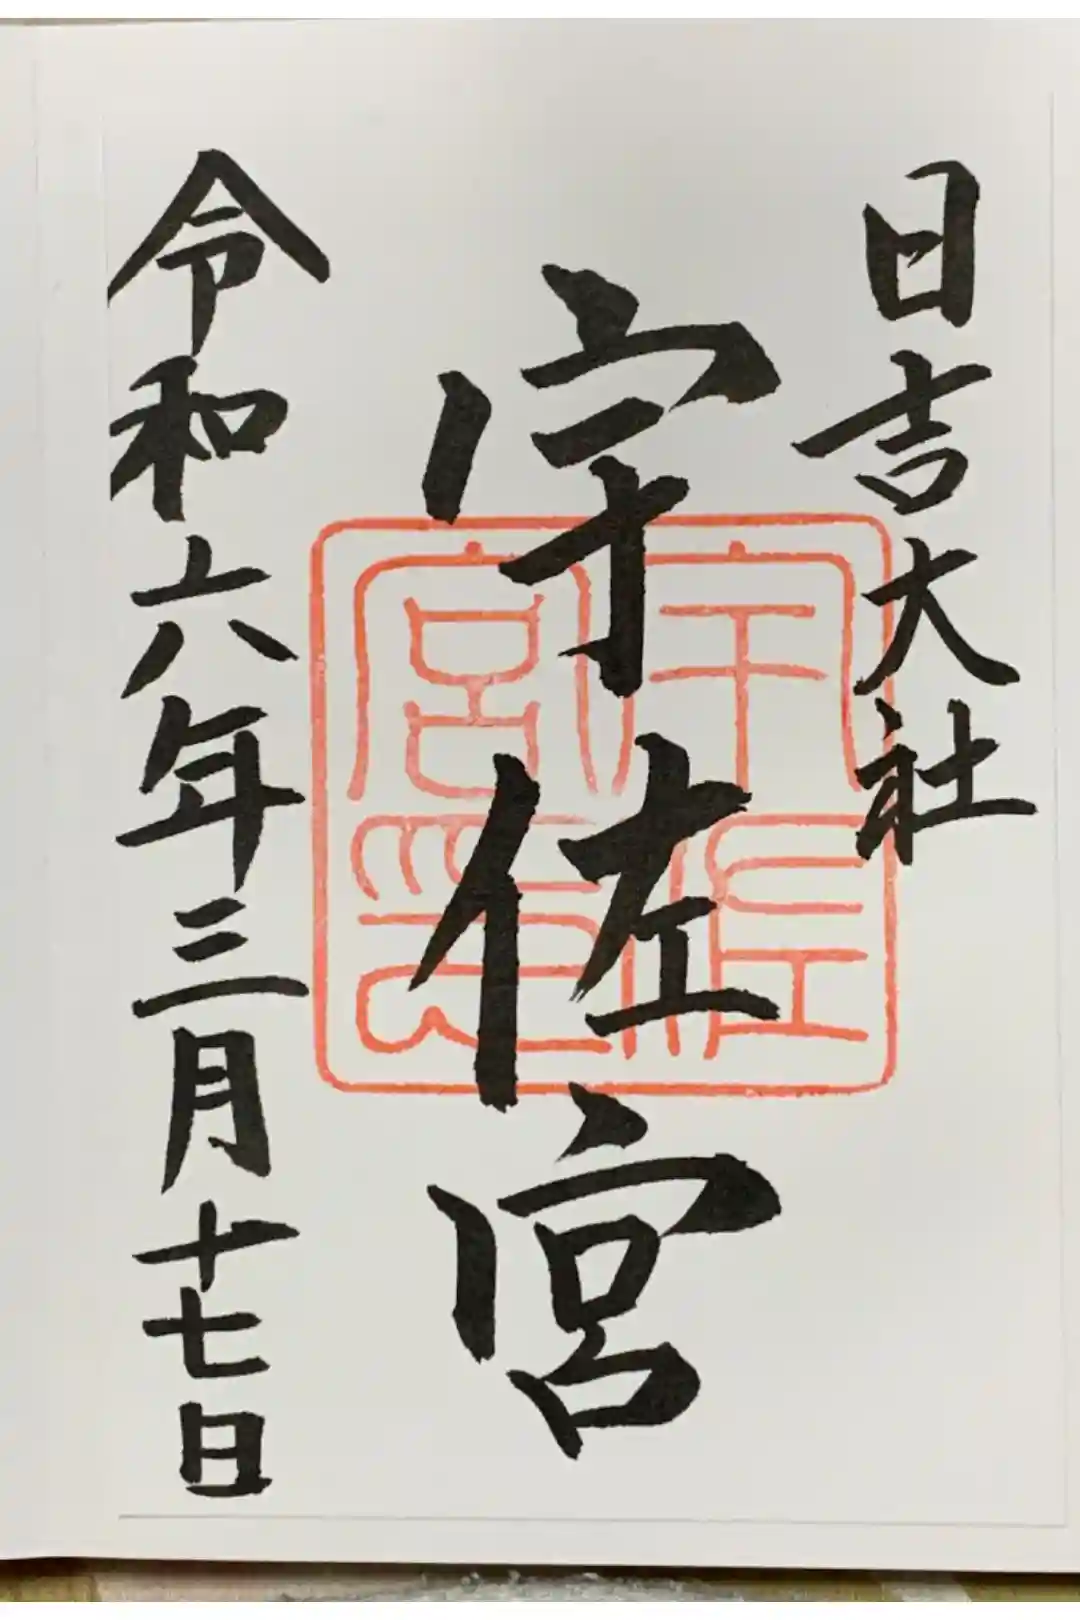 日吉大社
宇佐宮
令和六年三月十七日
宇佐
宮印